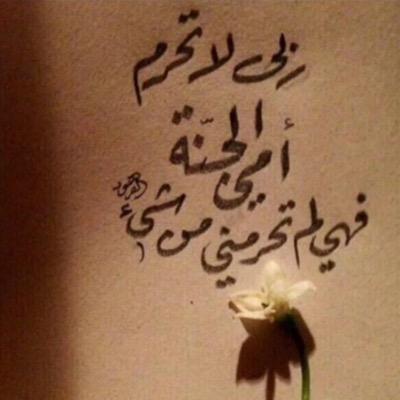 ربي لا تحرم
أمي الجنّة
فهي لم تحرمني من شيئ